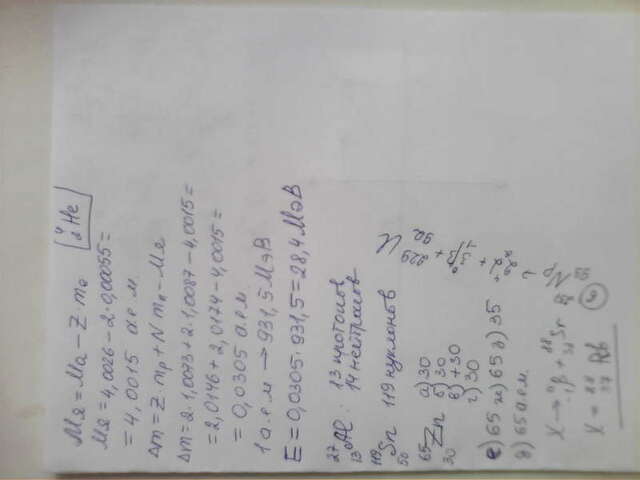 Mя = Ma − Z·me  ⁴₂He
Mя = 4,0026 − 2·0,00055 =
= 4,0015 а.е.м.
Δm = Z mp + N mn − Mя
Δm = 2·1,0073 + 2·1,0087 − 4,0015 =
= 2,0146 + 2,0174 − 4,0015 =
= 0,0305 а.е.м.
1 а.е.м → 931,5 МэВ
E = 0,0305·931,5 = 28,4 МэВ
²⁷₁₃Al : 13 протонов
14 нейтронов
¹¹⁹₅₀Sn 119 нуклонов
⁶⁵₃₀Zn а) 30
б) 30
в) +30
г) 30
е) 65 ж) 65 з) 35
д) 65 а.е.м.
X → ⁰₋₁β + ⁸⁸₃₈Sr
X = ⁸⁸₃₇Rb